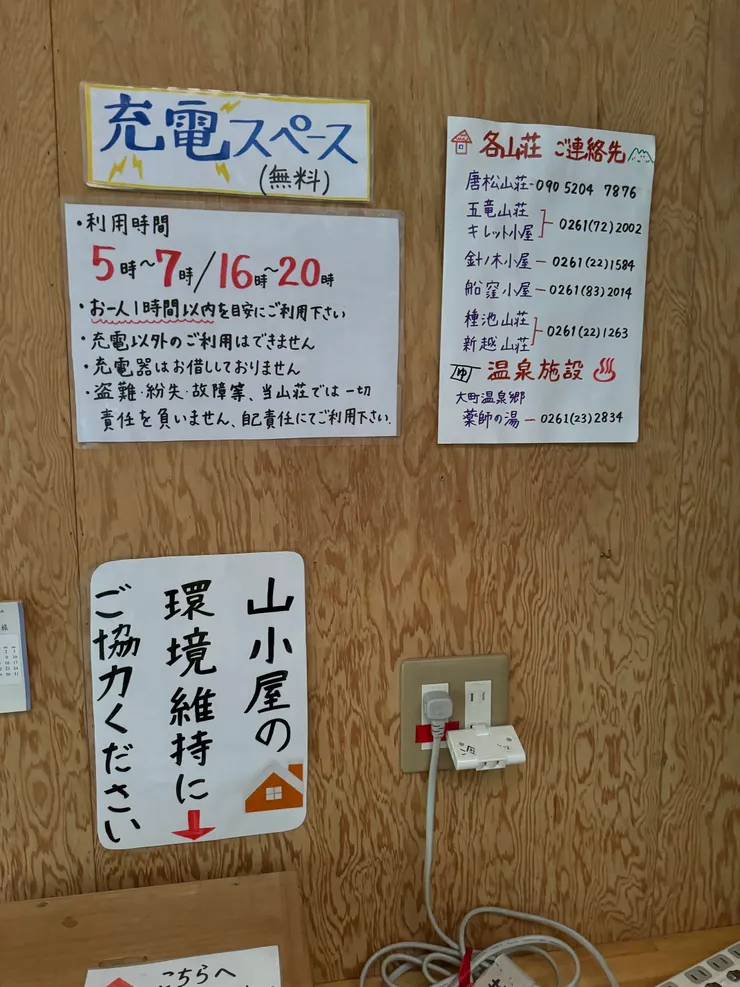 充電スペース
(無料)
・利用時間
5時~7時/16時~20時
・お一人1時間以内を目安にご利用下さい
・充電以外のご利用はできません
・充電器はお借しておりません
・盗難・紛失・故障等、当山荘では一切
責任を負いません、自己責任にてご利用下さい.
各山荘 ご連絡先
唐松山荘-090 5204 7876
五竜山荘
キレット小屋
0261(72)2002
針ノ木小屋-0261(22)1584
船窪小屋-0261(83)2014
種池山荘
新越山荘
0261(22)1263
ゆ 温泉施設
大町温泉郷
薬師の湯-0261(23)2834
山小屋の
環境維持に
ご協力ください
こちらへ